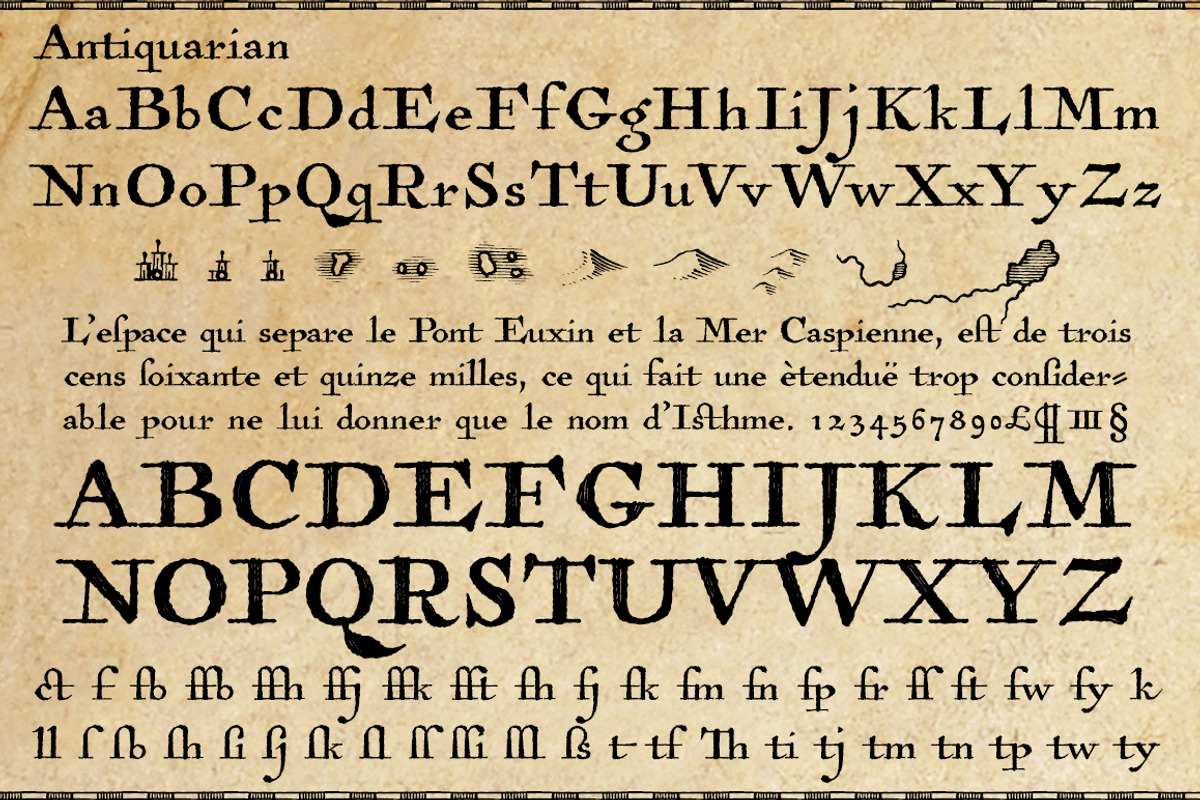 Antiquarian
AaBbCcDdEeFfGgHhIiJjKkLlMm
NnOoPpQqRrSsTtUuVvWwXxYyZz
L'eſpace qui separe le Pont Euxin et la Mer Caspienne, eſt de trois
cens ſoixante et quinze milles, ce qui fait une ètenduë trop conſider⸗
able pour ne lui donner que le nom d'Iſthme. 1234567890£¶III§
ABCDEFGHIJKLM
NOPQRSTUVWXYZ
ct f fb ffb ffh ffj ffk fft fh fj fk fm fn fp fr ff ft fw fy k
ll ſ ſb ſh ſi ſj ſk ſl ſſ ſſi ſſl ſs t tf Th ti tj tm tn tp tw ty